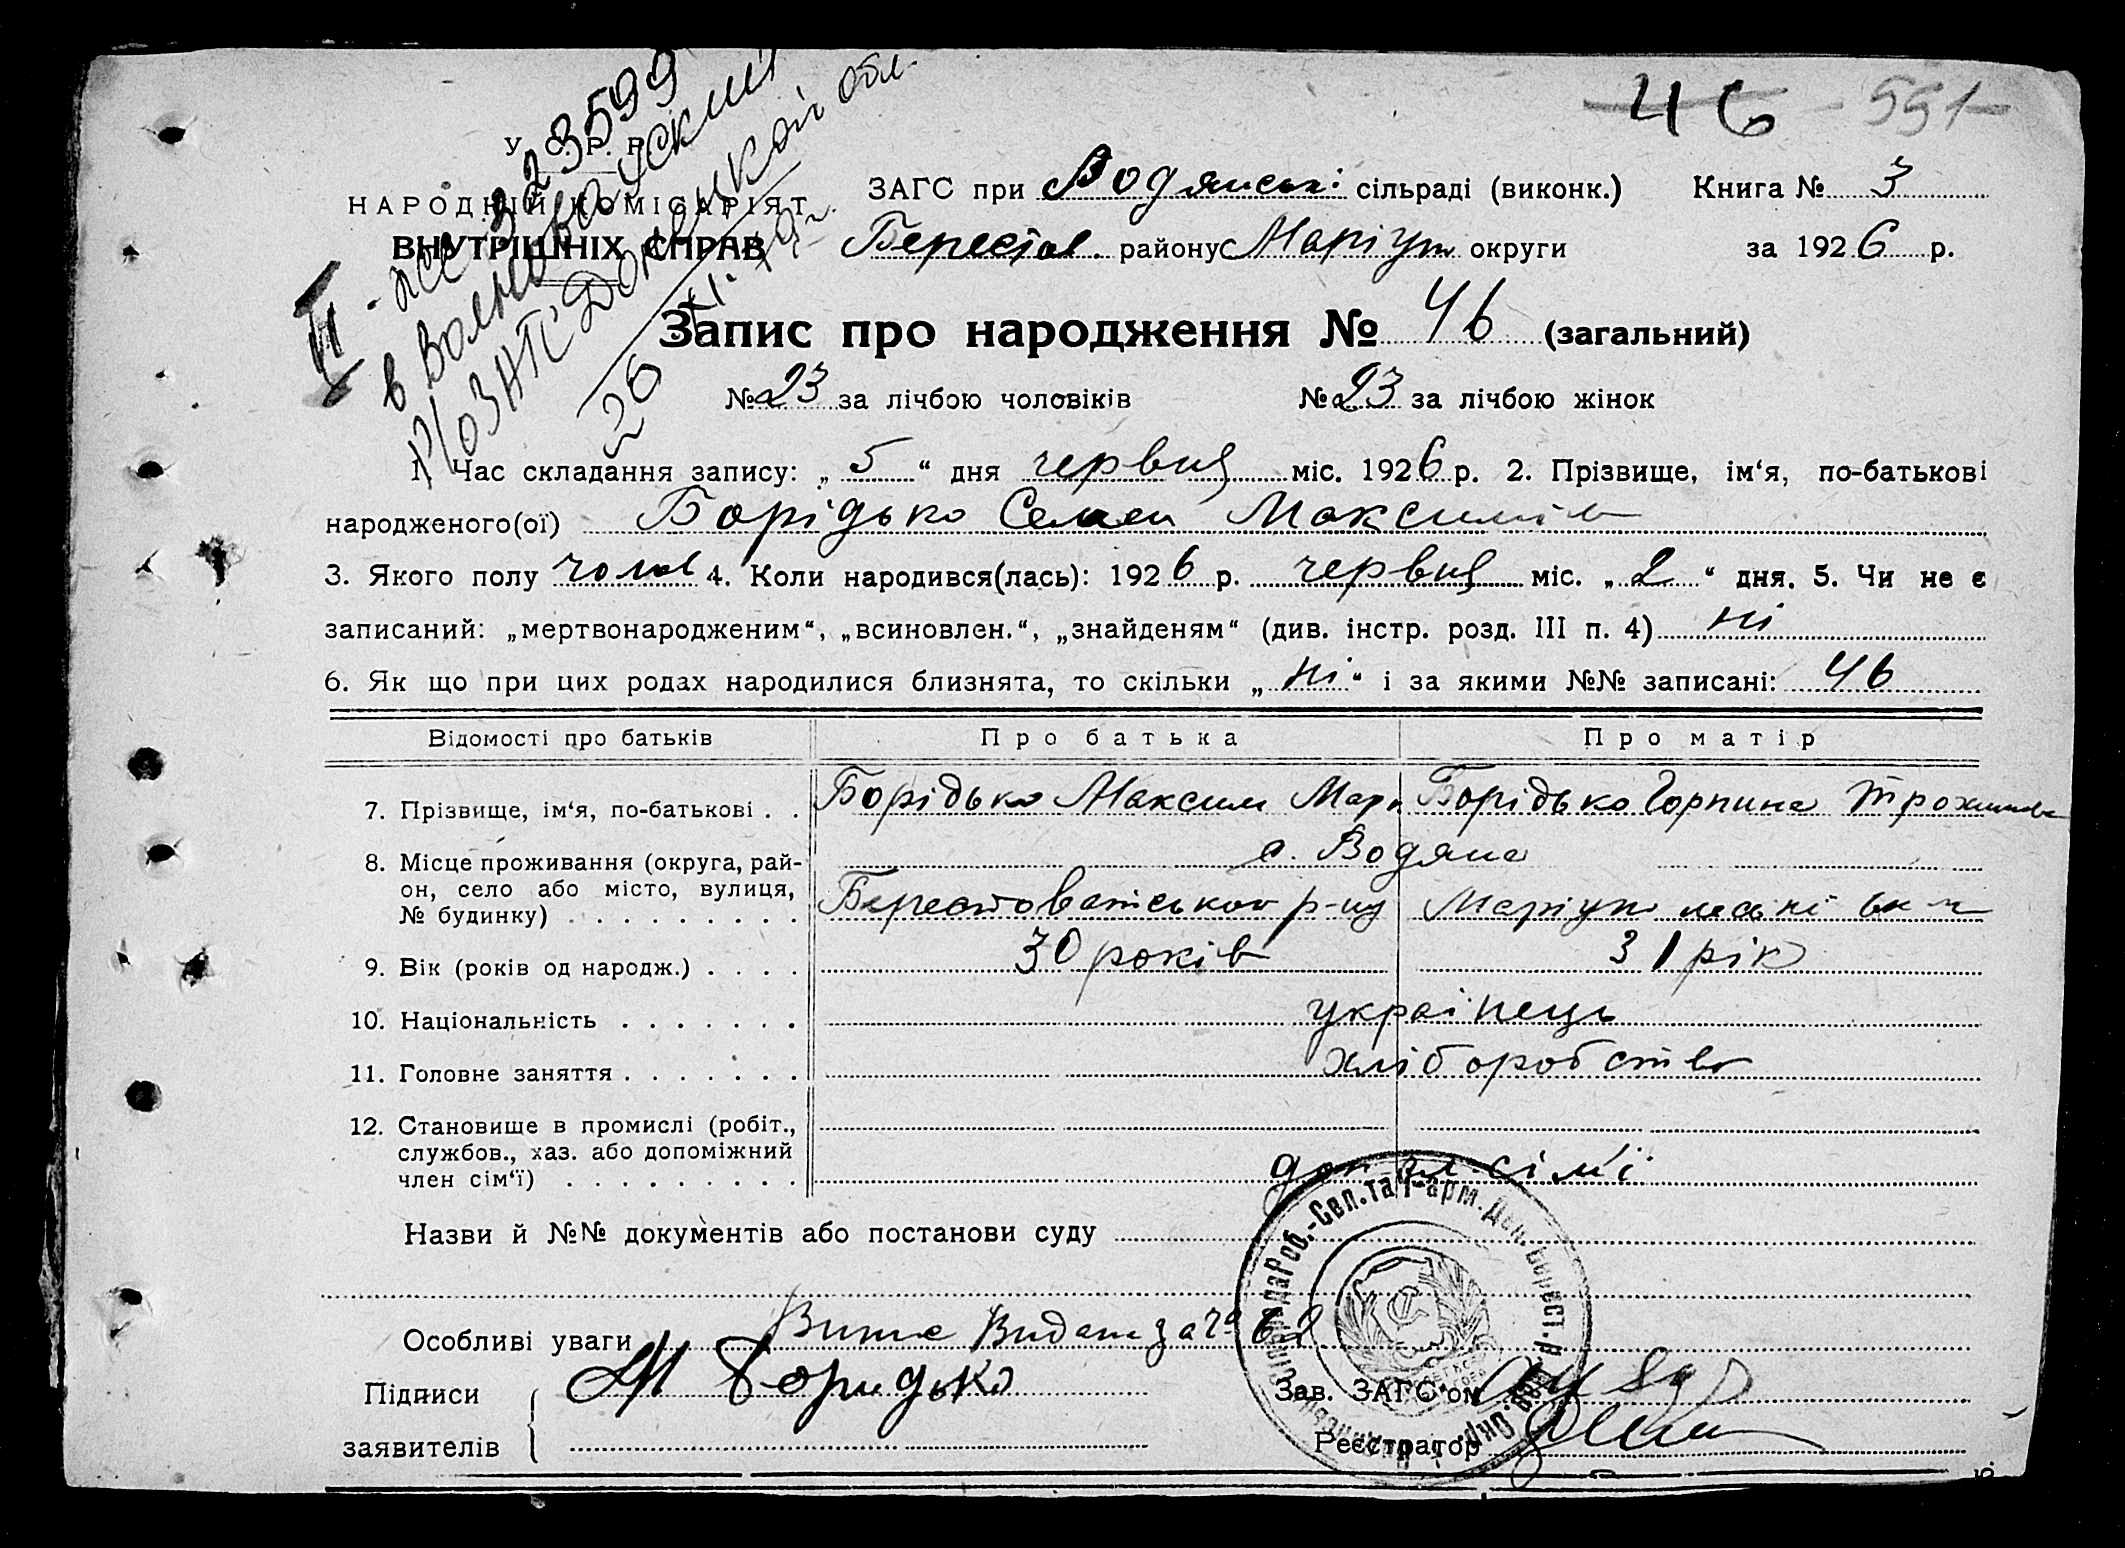 46 551
У. С. Р. Р.
НАРОДНІЙ КОМІСАРІЯТ
ВНУТРІШНІХ СПРАВ
26
ЗАГС при Водянські сільраді (виконк.) Книга № 3
Берестов. району Маріуп округи за 1926 р.
Запис про народження № 46 (загальний)
№ 23 за лічбою чоловіків № 23 за лічбою жінок
1. Час складання запису: „ 5 “ дня червня міс. 1926 р. 2. Прізвище, ім‘я, по-батькові
народженого(ої) Борідько Семен Максимів
3. Якого полу чолов 4. Коли народився(лась): 1926 р. червня міс. „ 2 “ дня. 5. Чи не є
записаний: „мертвонародженим“, „всиновлен.“, „знайденям“ (див. інстр. розд. III п. 4) ні
6. Як що при цих родах народилися близнята, то скільки „ ні “ і за якими №№ записані: 46
Відомості про батьків Про батька Про матір
7. Прізвище, ім‘я, по-батькові . . Борідько Максим Марк Борідько Горпина
8. Місце проживання (округа, рай-
он, село або місто, вулиця,
№ будинку) . . . . . . . . .
с. Водяна
Берестоватського р-ну Маріуп
9. Вік (років од народж.) . . . . 30 років 31 рік
10. Національність . . . . . . . українець
11. Головне заняття . . . . . . . хліборобство
12. Становище в промислі (робіт.,
службов., хаз. або допоміжний
член сім‘ї) . . . . . . . . . доп. чл. сім'ї
Назви й №№ документів або постанови суду
Особливі уваги Видана за № 62
Підписи М Боридько Зав. ЗАГС‘ом
заявителів Реєстратор